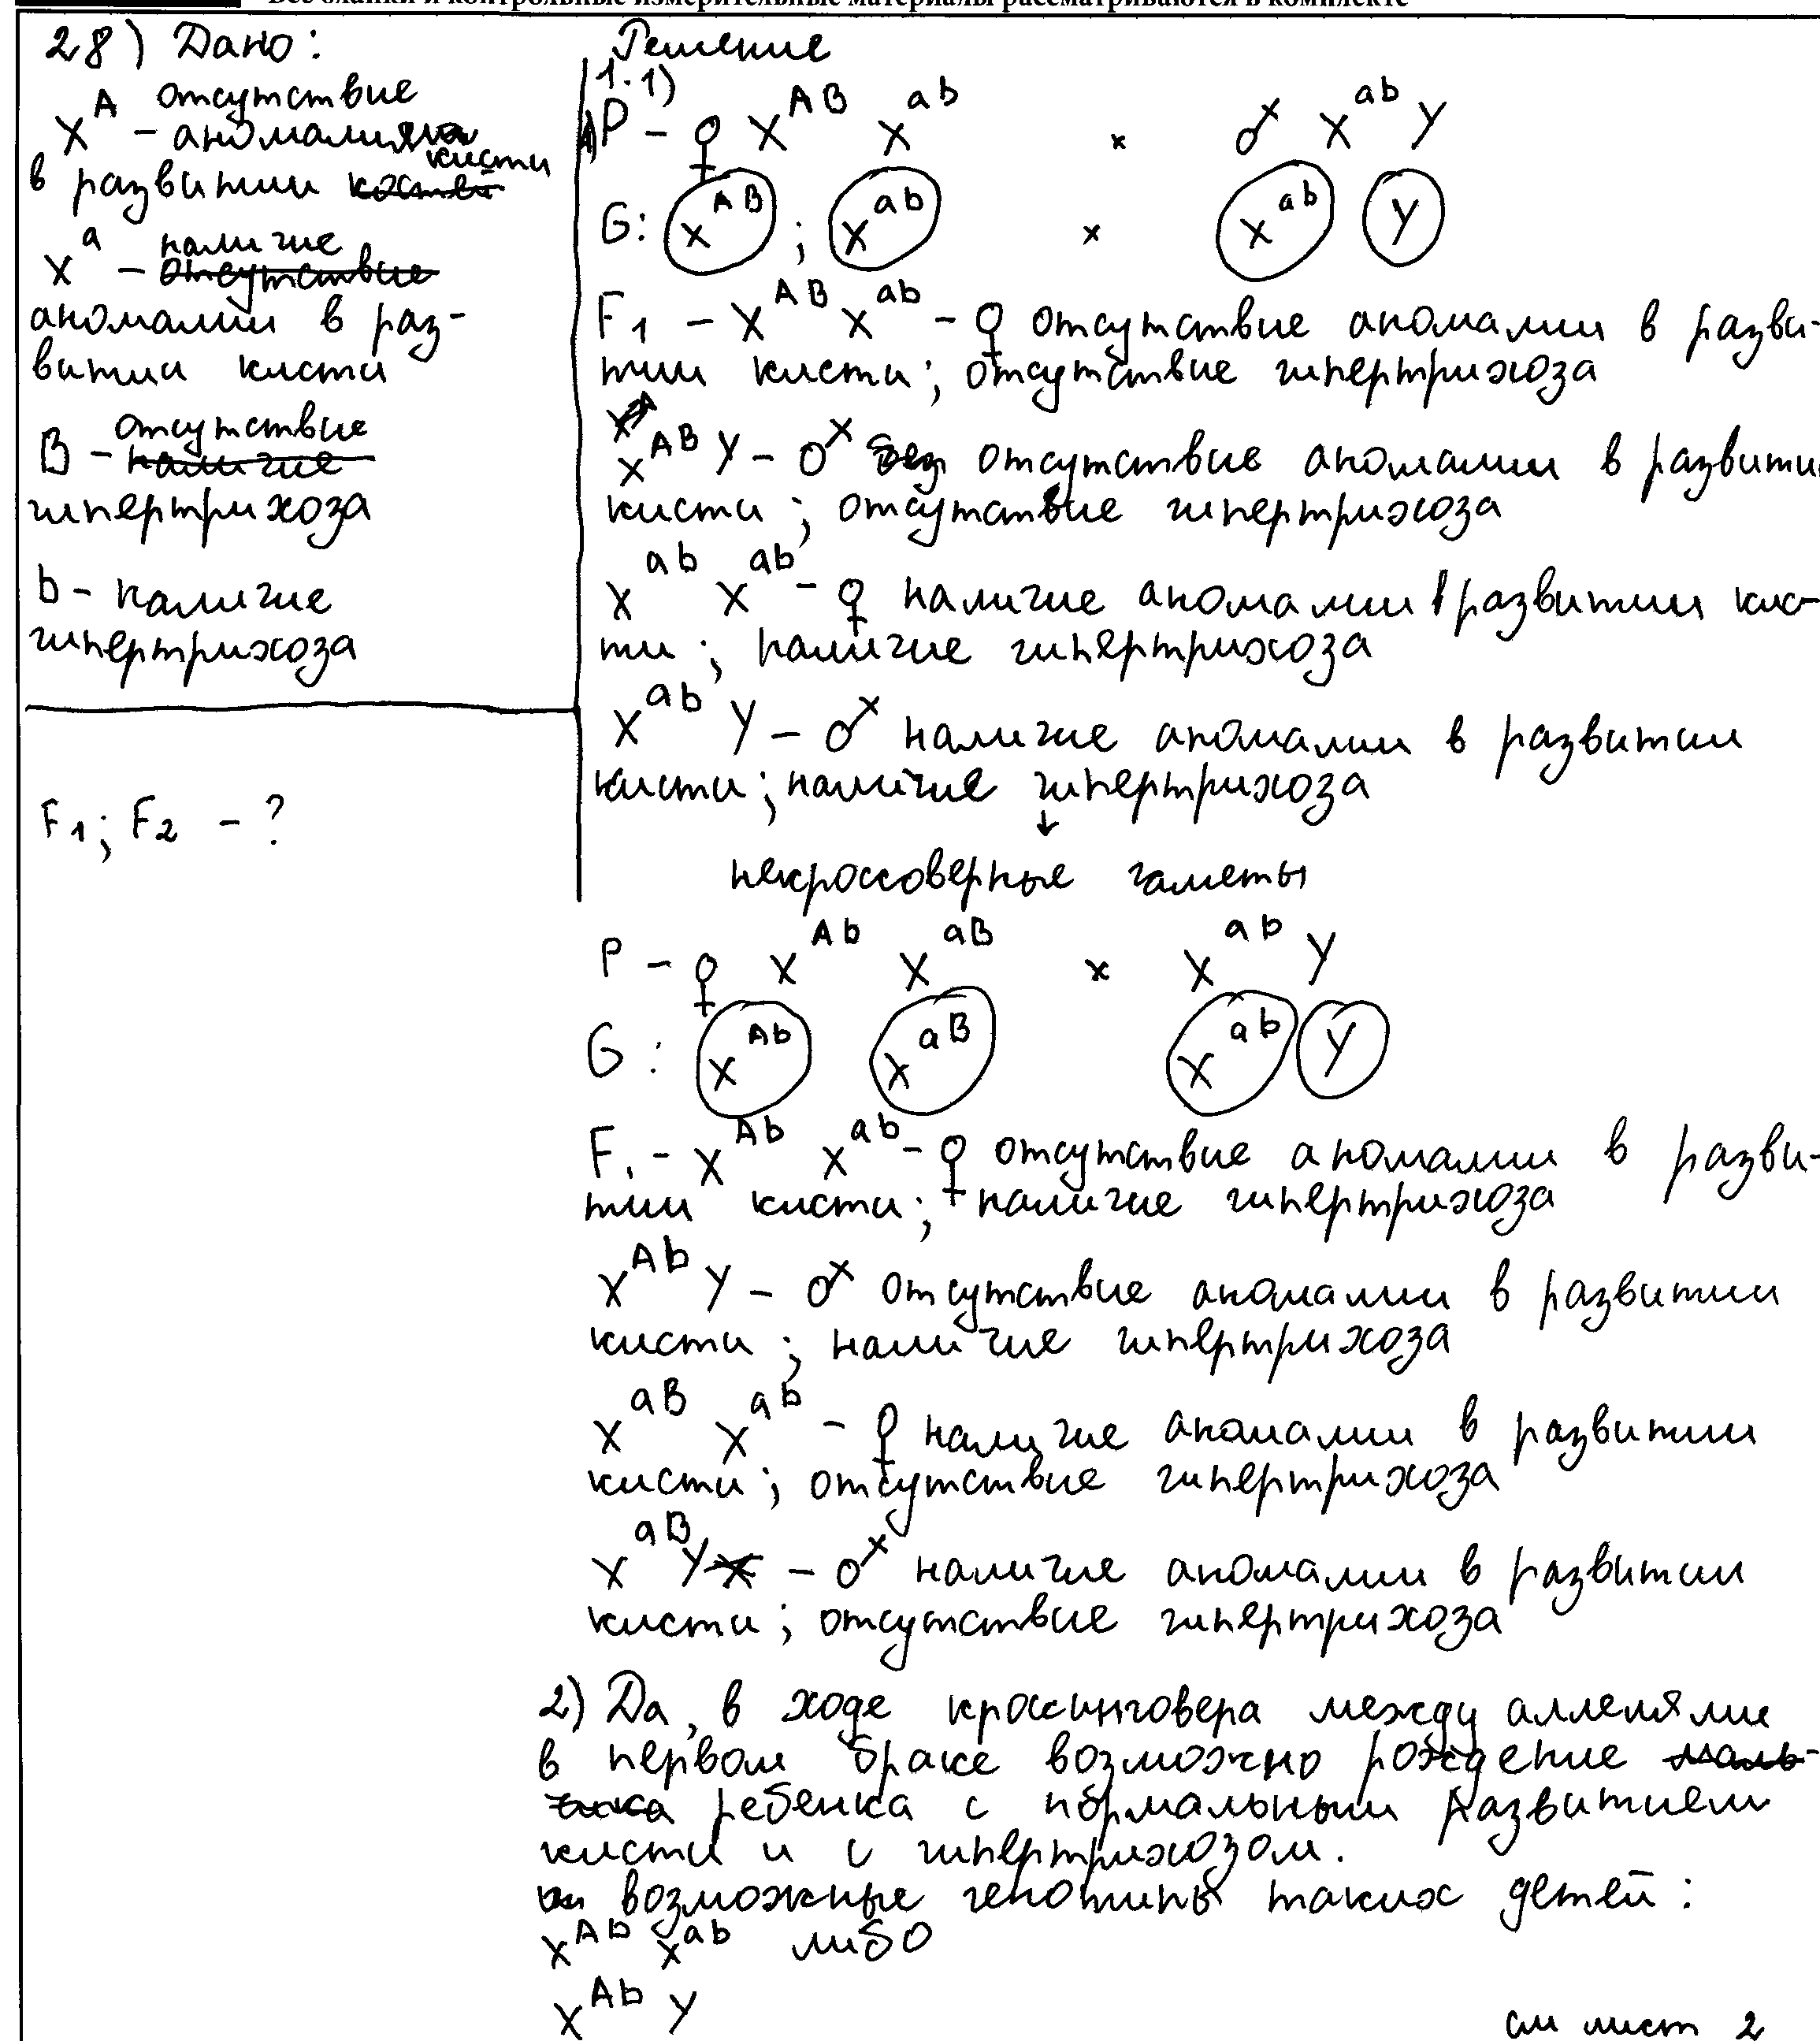 Все бланки и контрольные измерительные материалы рассматриваются в комплекте
28) Дано:
X^A – отсутствие
аномалии
в развитии кисти
X^a – наличие
аномалии в раз-
витии кисти
B – отсутствие
гипертрихоза
b – наличие
гипертрихоза
F1; F2 – ?
Решение
1.1)
P – ♀ X^AB X^ab × ♂ X^ab Y
G: X^AB ; X^ab × X^ab Y
F1 – X^AB X^ab – ♀ отсутствие аномалии в разви-
тии кисти; отсутствие гипертрихоза
X^AB Y – ♂ отсутствие аномалии в развити
кисти; отсутствие гипертрихоза
X^ab X^ab – ♀ наличие аномалии в развитии кис-
ти; наличие гипертрихоза
X^ab Y – ♂ наличие аномалии в развитии
кисти; наличие гипертрихоза
↓
некроссоверные гаметы
P – ♀ X^Ab X^aB × X^ab Y
G: X^Ab X^aB X^ab Y
F1 – X^Ab X^ab – ♀ отсутствие аномалии в разви-
тии кисти; наличие гипертрихоза
X^Ab Y – ♂ отсутствие аномалии в развитии
кисти; наличие гипертрихоза
X^aB X^ab – ♀ наличие аномалии в развитии
кисти; отсутствие гипертрихоза
X^aB Y – ♂ наличие аномалии в развитии
кисти; отсутствие гипертрихоза
2) Да, в ходе кроссинговера между аллелями
в первом браке возможно рождение
ребенка с нормальным развитием
кисти и с гипертрихозом.
возможные генотипы таких детей:
X^Ab X^ab либо
X^Ab Y
см лист 2